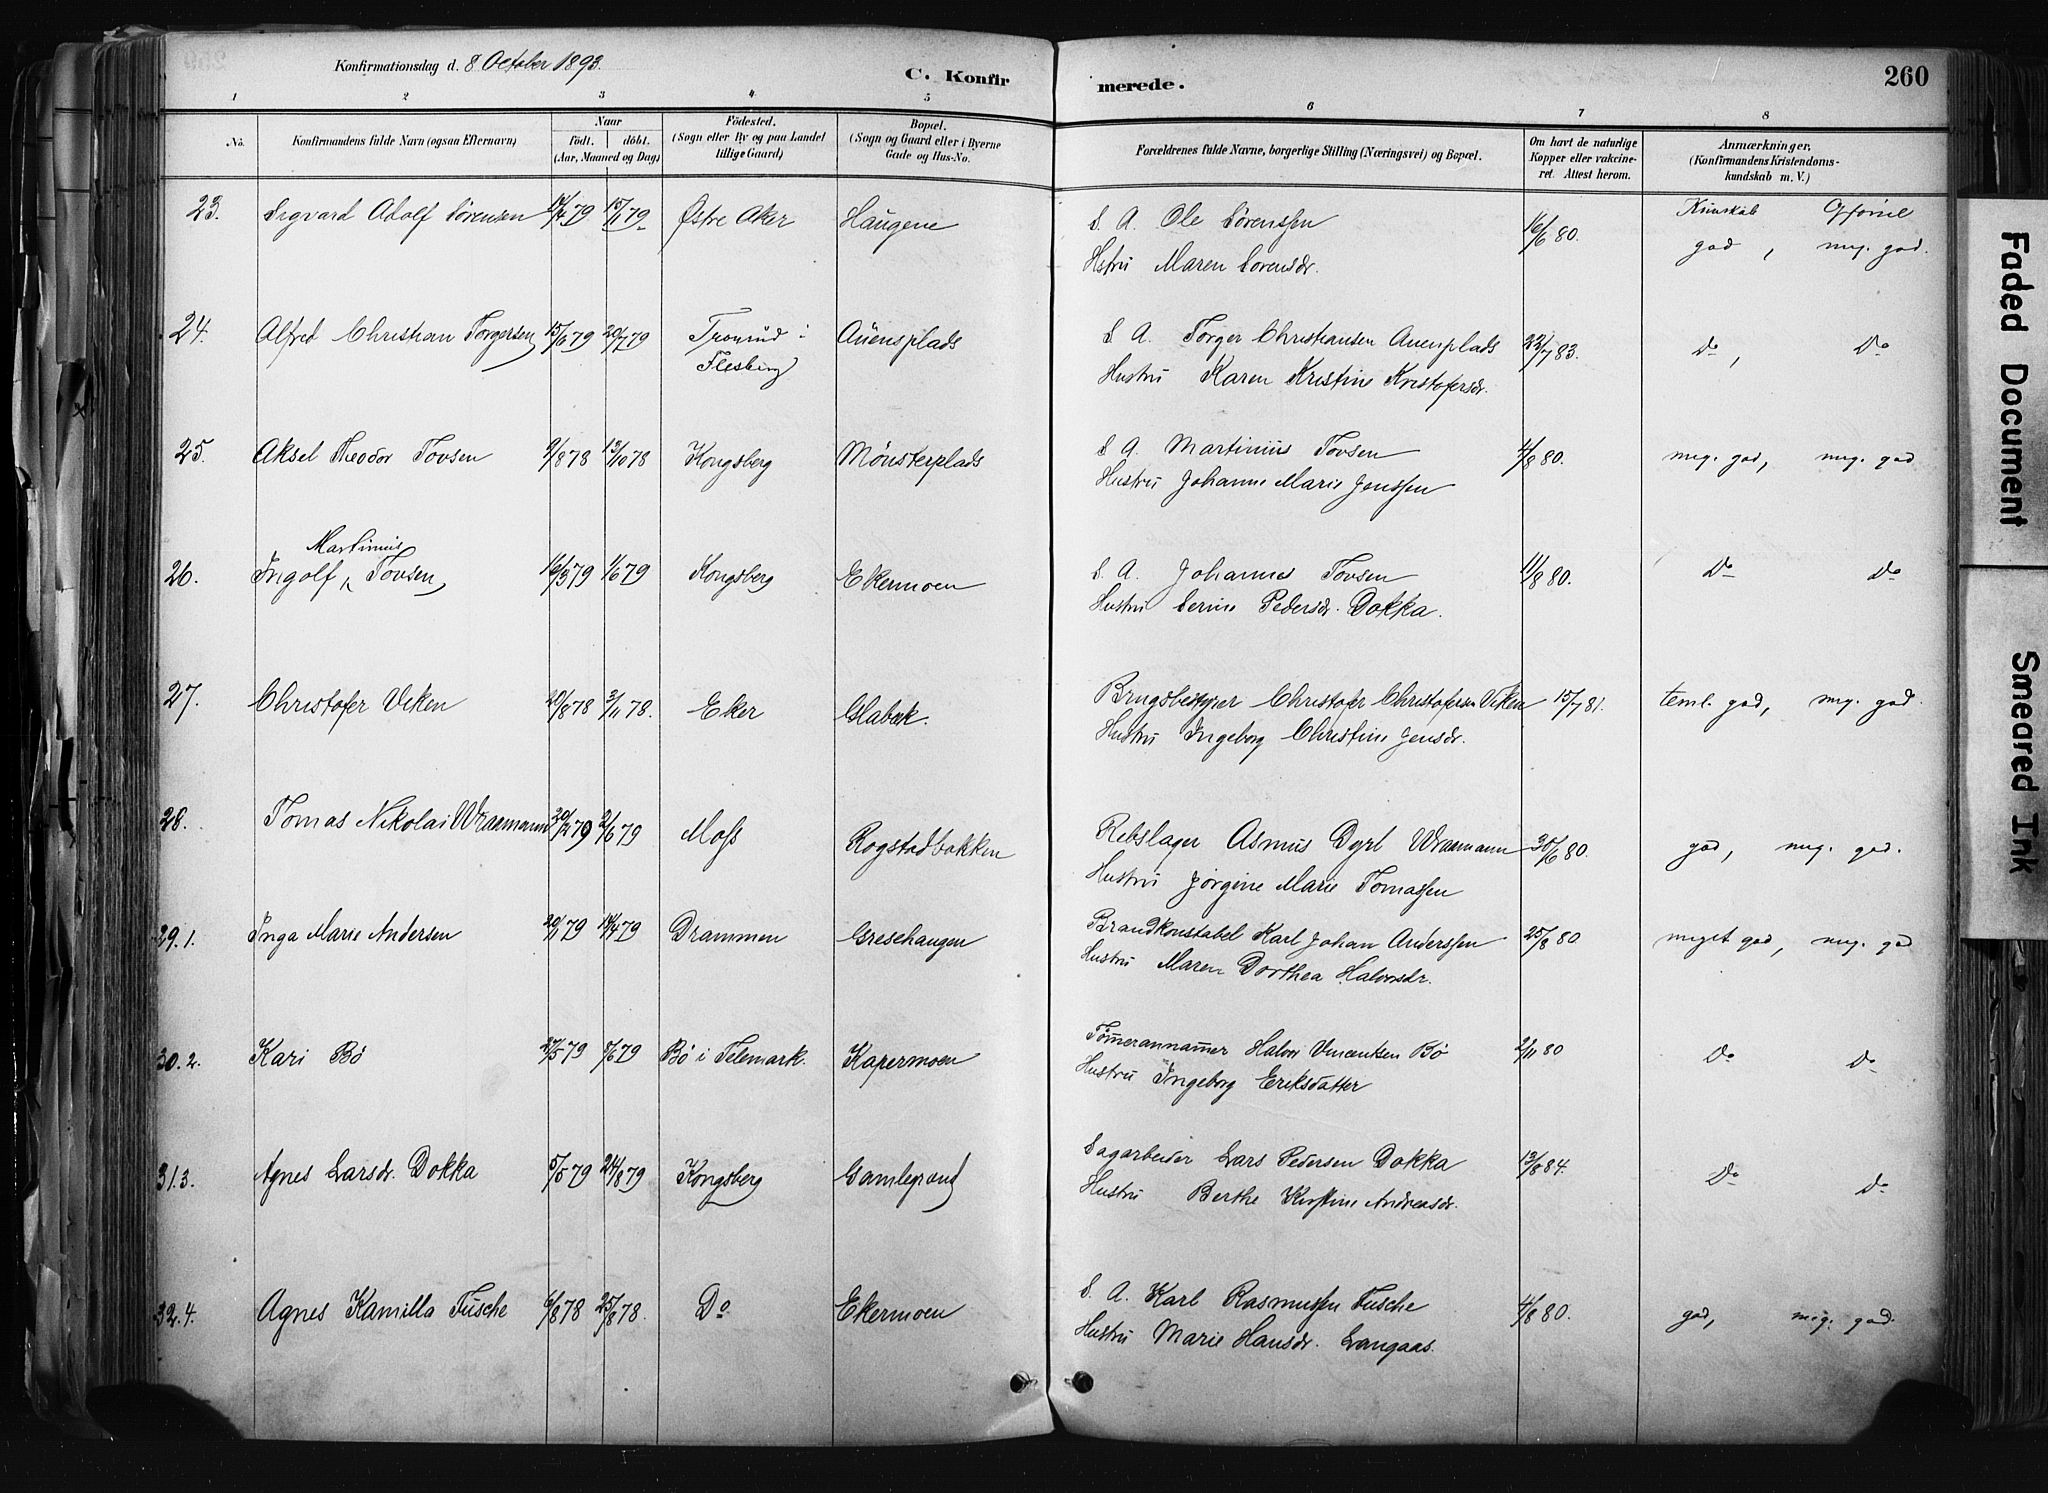 Konfirmationsdag d. 8 October 1893.
C. Konfir merede. 260
1 2 3 4 5 6 7 8
No. Konfirmandens fulde Navn (ogsaa Efternavn) Naar födt. döbt. (Aar, Maaned og Dag) Födested. (Sogn eller By og paa Landet tillige Gaard) Bopæl. (Sogn og Gaard eller i Byerne Gade og Hus-No. Forældrenes fulde Navne, borgerlige Stilling (Næringsvei) og Bopæl. Om havt de naturlige Kopper eller vakcineret. Attest herom. Anmærkninger. (Konfirmandens Kristendomskundskab m. V.)
Kunskab Opførsel
23. Sigvard Adolf Sørensen 79 79 Østre Aker Haugene S. A. Ole Sørenssen 16/6 80. god, meg. god.
Hstru Maren Sorensdr.
24. Alfred Christian Torgersen 15/6 79 20/7 79 i Flesberg Auensplads S. A. Torger Christiansen Auenplads 22/7 83. Do, Do
Hustru Karen Kristine Kristofersdr.
25. Aksel Theodor Tovsen 9/8 78 13/10 78 Kongsberg Mønsterplads S. A. Martinius Tovsen 4/8 80. meg. god, meg. god
Hustru Johanne Marie Jenssen
Martinius
26. Ingolf Tovsen 16/3 79 1/6 79 Kongsberg Ekermoen S. A. Johannes Tovsen 11/8 80. Do Do
Hustru Serine Pedersdr. Dokka.
27. Christofer Viken 20/8 78 3/11 78. Eker Glabek. Brugsbestyrer Christofer Christofersen Viken 15/7 81. teml. god, meg. god.
Hustru Ingeborg Christine Jensdr.
28. Tomas Nikolai Wraamann 20/2 79 2/6 79 Moss Rogstadbakken Rebslager Asmus Dyrl Wraamann 30/6 80. god, meg. god.
Hustru Jørgine Marie Tomassen
29. 1. Inga Marie Andersen 20/1 79 14/4 79 Drammen Gresehaugen Brandkonstabel Karl Johan Anderssen 25/8 80 meget god, meg. god
Hustru Maren Dorthea Halvorsdr.
30. 2. Kari Bø 27/5 79 7/6 79 Bø i Telemark. Kapermoen Tømmermand Halvor Vincentsen Bø 2/11 80 Do Do
Hustru Ingeborg Eriksdatter
31 3. Agnes Larsdr. Dokka 5/5 79 24/8 79 Kongsberg Gamlegrend Sagarbeider Lars Pedersen Dokka 13/8 84. Do Do
Hustru Berthe Kirstine Andreasdr.
32. 4. Agnes Kamilla Tusche 6/8 78 25/8 78. Do Ekermoen S. A. Karl Rasmussen Tusche 4/8 80. god, meg. god.
Hustru Marie Hansdr. Langaas.
Faded Document
Smeared Ink